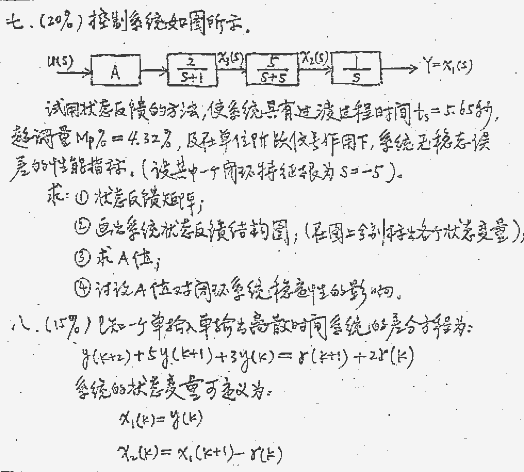 七、(20%) 控制系统如图所示。
U(s) A 2/(s+1) x₃(s) 5/(s+5) x₂(s) 1/s Y=x₁(s)
试用状态反馈的方法,使系统具有过渡过程时间tₛ=5.65秒,
超调量Mp%=4.32%,及在单位阶跃信号作用下,系统无稳态误
差的性能指标。(设其中一个闭环特征根为s=-5)。
求:① 状态反馈矩阵;
② 画出系统状态反馈结构图;(在图上分别标出各个状态变量);
③ 求A值;
④ 讨论A值对闭环系统稳定性的影响。
八、(15%) 已知一个单输入单输出离散时间系统的差分方程为:
y(k+2)+5y(k+1)+3y(k)=r(k+1)+2r(k)
系统的状态变量可定义为:
x₁(k)=y(k)
x₂(k)=x₁(k+1)-r(k)